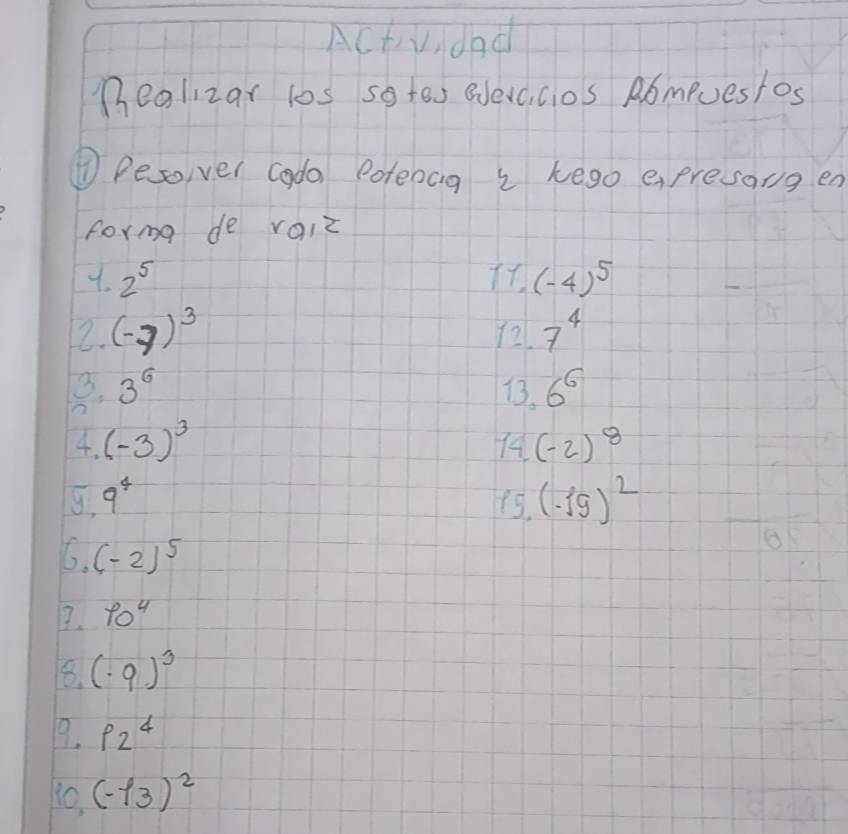 Actividad
Realizar los sgtes ejercicios Propuestos
1) Resolver cada Potencia y luego expresarlg en
forma de raiz
1. 2⁵
2. (-7)³
3. 3⁶
4. (-3)³
5. 9⁴
6. (-2)⁵
7. 10⁴
8. (-9)³
9. 12⁴
10. (-13)²
11. (-4)⁵
12. 7⁴
13. 6⁶
14. (-2)⁸
15. (-15)²